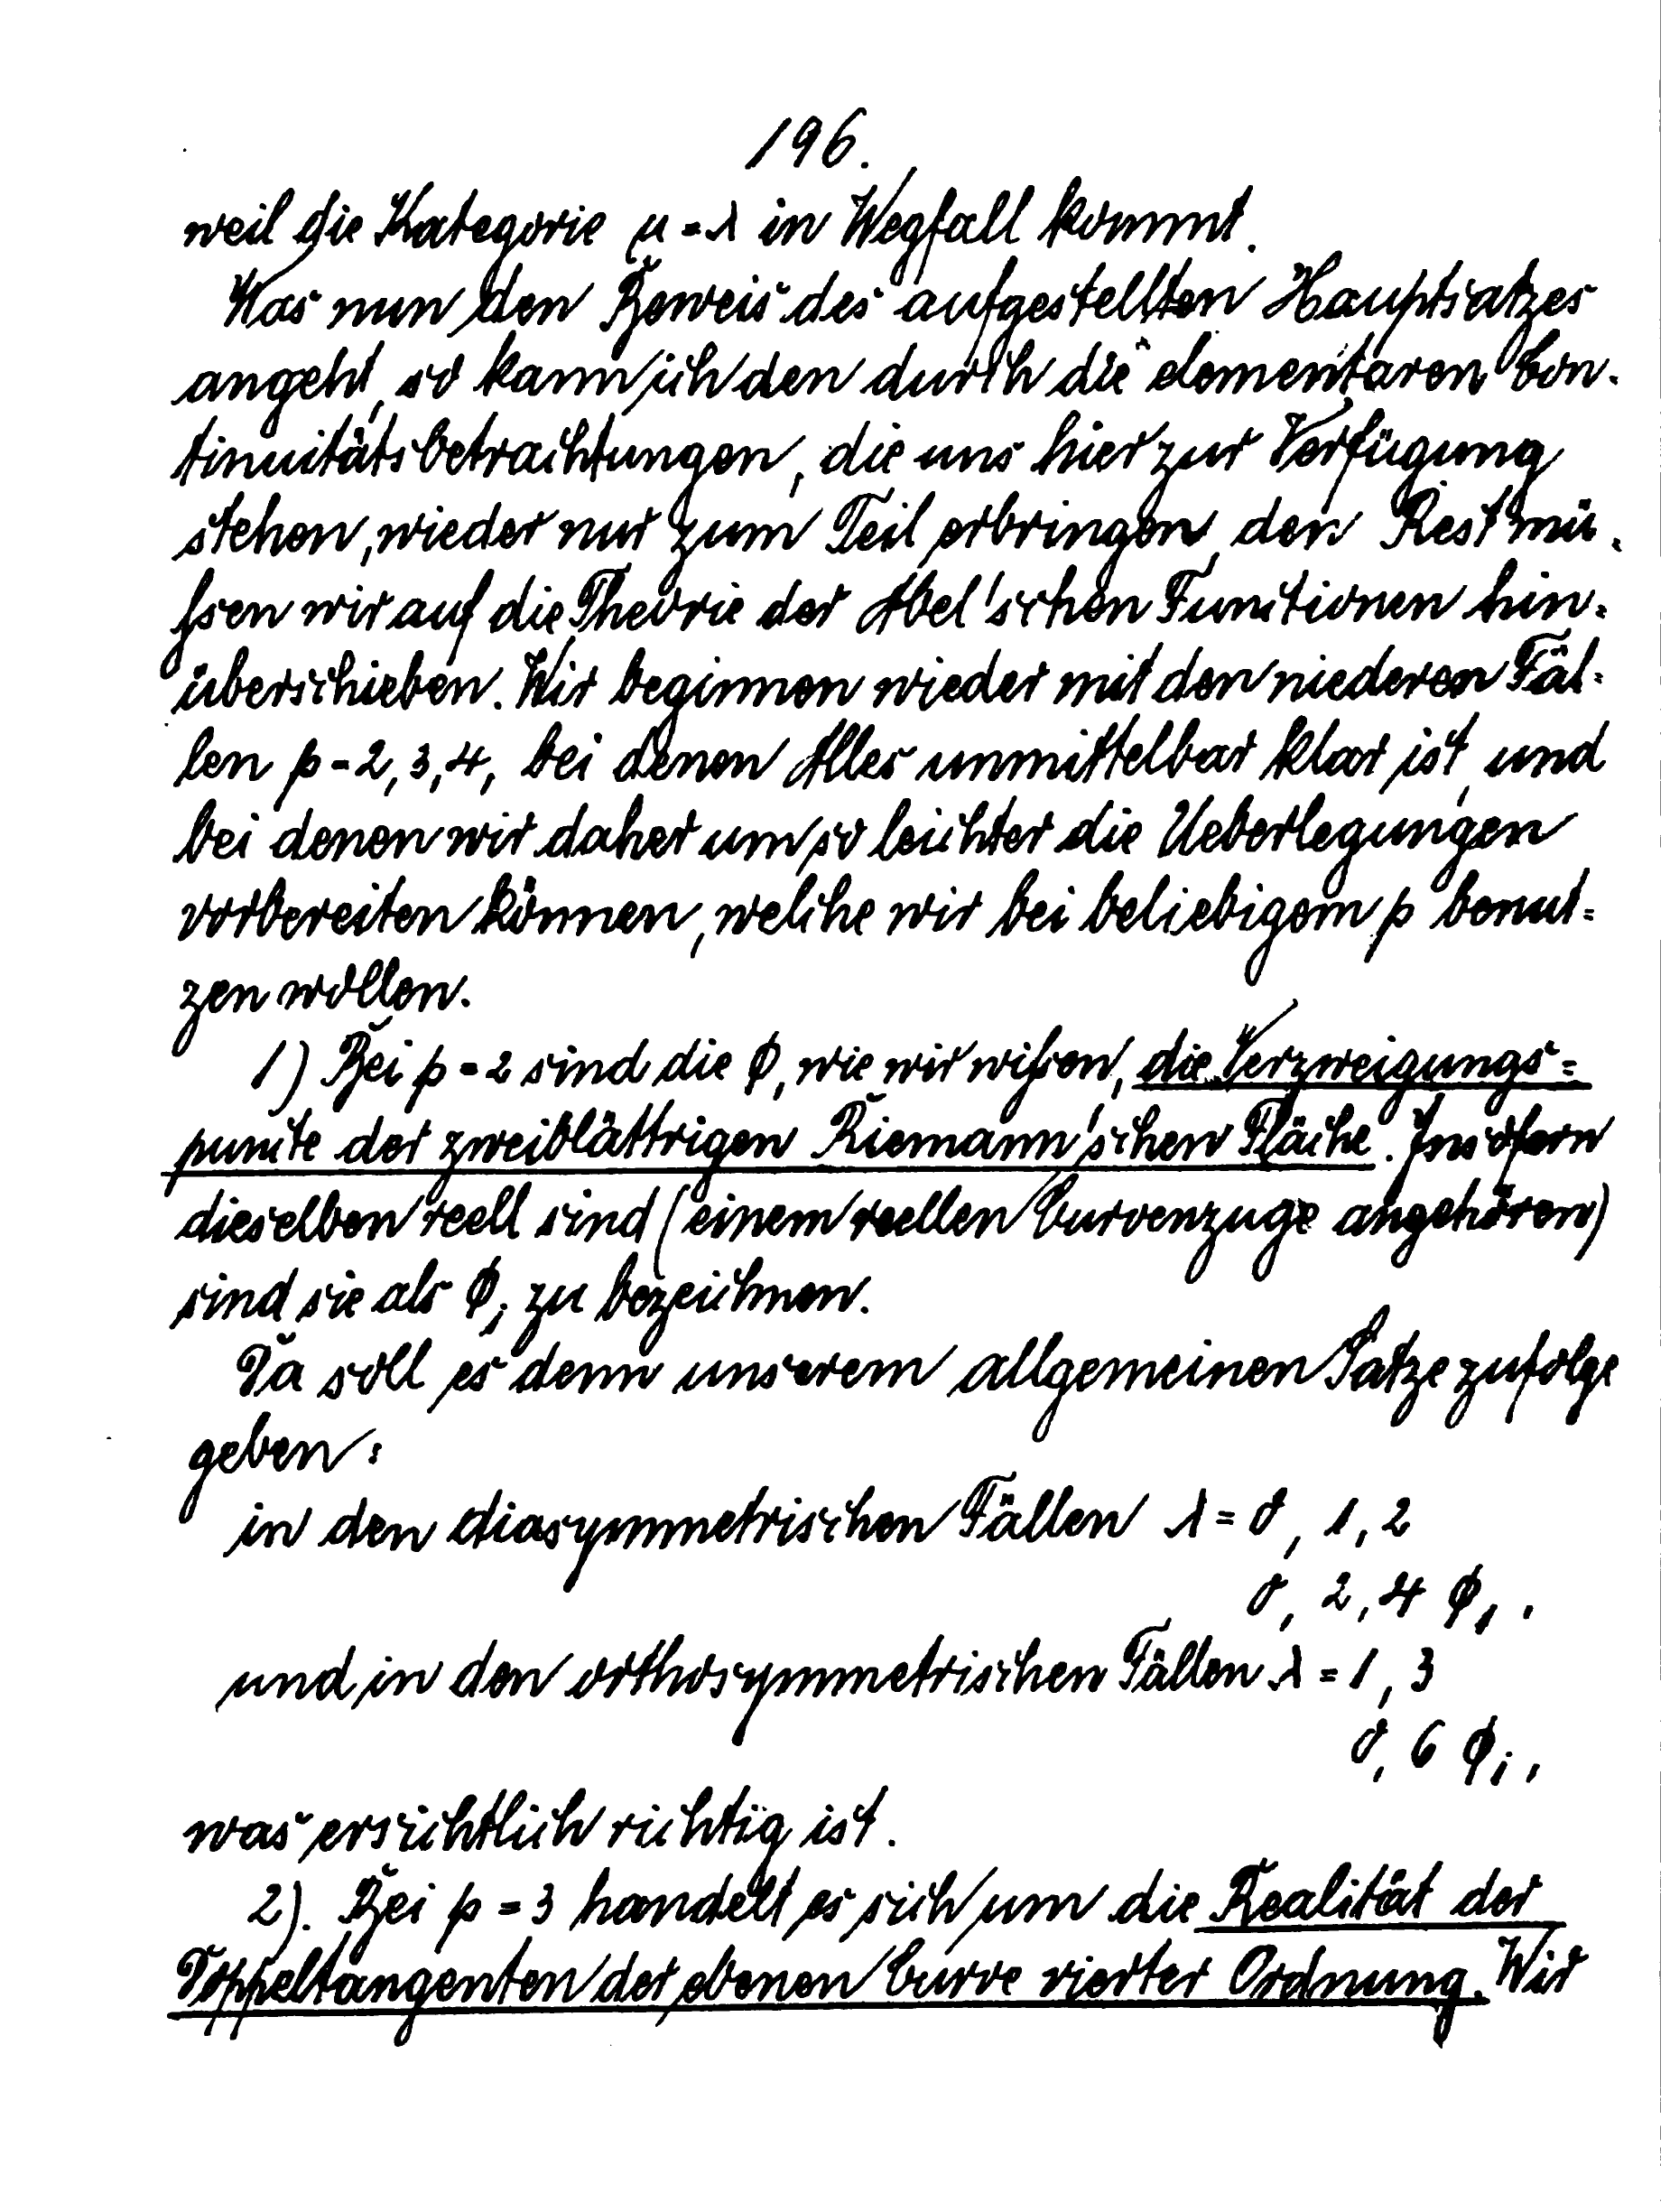 196.
weil die Kategorie μ = λ in Wegfall kommt.
Was nun den Beweis des aufgestellten Hauptsatzes
angeht, so kann ich den durch die elementaren Con-
tinuitätsbetrachtungen, die uns hier zur Verfügung
stehen, wieder nur zum Teil erbringen, den Rest müs-
sen wir auf die Theorie der Abel'schen Functionen hin-
überschieben. Wir beginnen wieder mit den niederen Fäl-
len p = 2, 3, 4, bei denen Alles unmittelbar klar ist, und
bei denen wir daher um so leichter die Ueberlegungen
vorbereiten können, welche wir bei beliebigem p benut-
zen wollen.
1) Bei p = 2 sind die φ, wie wir wissen, die Verzweigungs-
puncte der zweiblättrigen Riemann'schen Fläche. Insofern
dieselben reell sind (einem reellen Curvenzuge angehören)
sind sie als φ; zu bezeichnen.
Da soll es denn unserem allgemeinen Satze zufolge
geben:
in den diasymmetrischen Fällen λ = 0, 1, 2
0, 2, 4 φ,.
und in den orthosymmetrischen Fällen λ = 1, 3
0, 6 φ;,
was ersichtlich richtig ist.
2). Bei p = 3 handelt es sich um die Realität der
Doppeltangenten der ebenen Curve vierter Ordnung. Wir